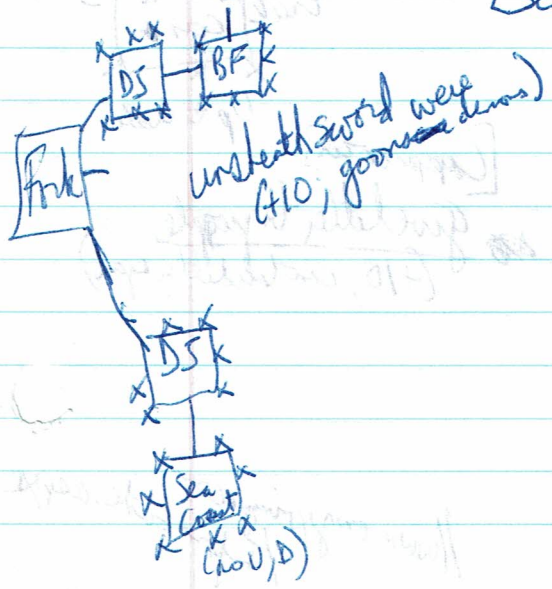 DS
BF
unsheath sword were
(+10, goons demons)
Fork
DS
Sea
Coast
(no U, D)